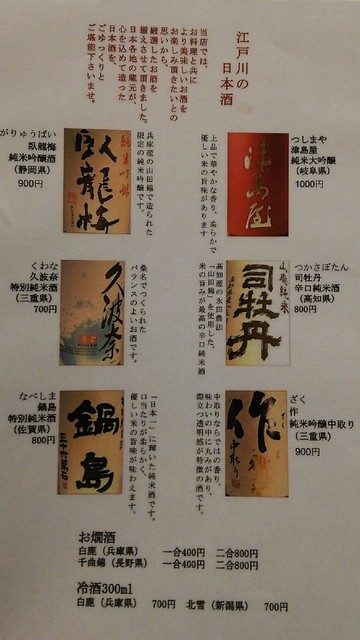 江戸川の
日本酒
当店では、
お料理と共に
より美味しいお酒を
お楽しみ頂きたいとの
思いから、
厳選したお酒を
揃えさせて頂きました。
日本各地の蔵元が、
心を込めて造った
日本酒を、
ごゆっくりと
ご堪能下さいませ。
つしまや
津島屋
純米大吟醸
(岐阜県)
1000円
津島屋
上品で華やかな香り、柔らかで
優しい米の旨味があります
がりゅうばい
臥龍梅
純米吟醸酒
(静岡県)
900円
純米吟醸
臥龍梅
兵庫産の山田錦で造られた
限定の純米吟醸です。
つかさぼたん
司牡丹
辛口純米酒
(高知県)
800円
山廃純米
司牡丹
高知産の永田農法
「山田錦」を使用した、
米の旨みが最高の辛口純米酒
くわな
久波奈
特別純米酒
(三重県)
700円
久波奈
桑名でつくられた
バランスのよいお酒です。
ざく
作
純米吟醸中取り
(三重県)
900円
作
中取り
中取りならではの香り、
味わいの中に丸みがあり、
際立つ透明感が特徴の酒です。
なべしま
鍋島
特別純米酒
(佐賀県)
800円
鍋島
三十六萬石
「日本一」に輝いた純米酒です。
口当たりが柔らかく、
優しい米の旨味が味わえます。
お燗酒
白鹿(兵庫県) 一合400円 二合800円
千曲錦(長野県) 一合400円 二合800円
冷酒300ml
白鹿(兵庫県) 700円 北雪(新潟県) 700円